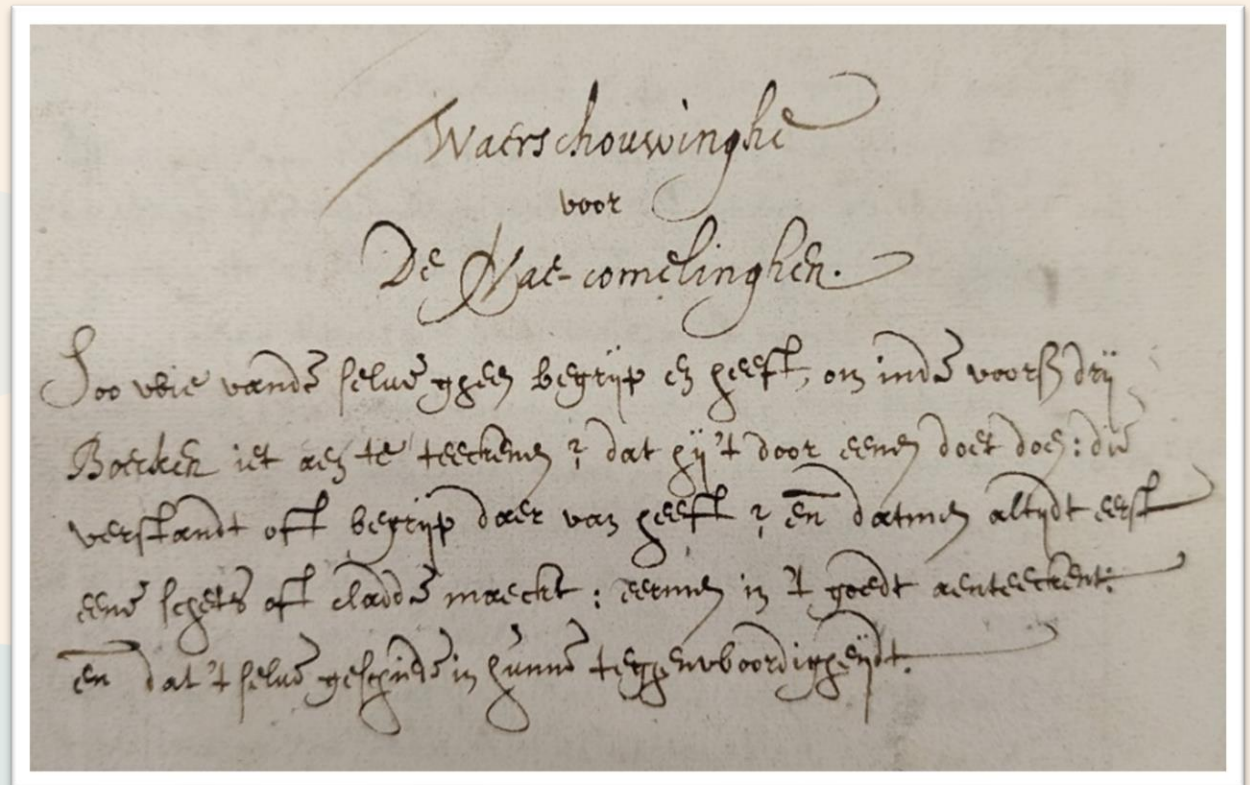 Waerschouwinghe
voor
De Nae-comelinghen.
Soo wie vande selve gheen begrijp en heeft, om inde voors drij
Boecken iet aen te teeckenen, dat hij't door eenen doet doen: die
verstandt oft begrijp daer van heeft, en datmen altijdt eerst
eene schets oft cladde maeckt: eermen in 't goedt aenteeckent:
en dat 't selve geschiede in hunne teghenwoordigheijdt.